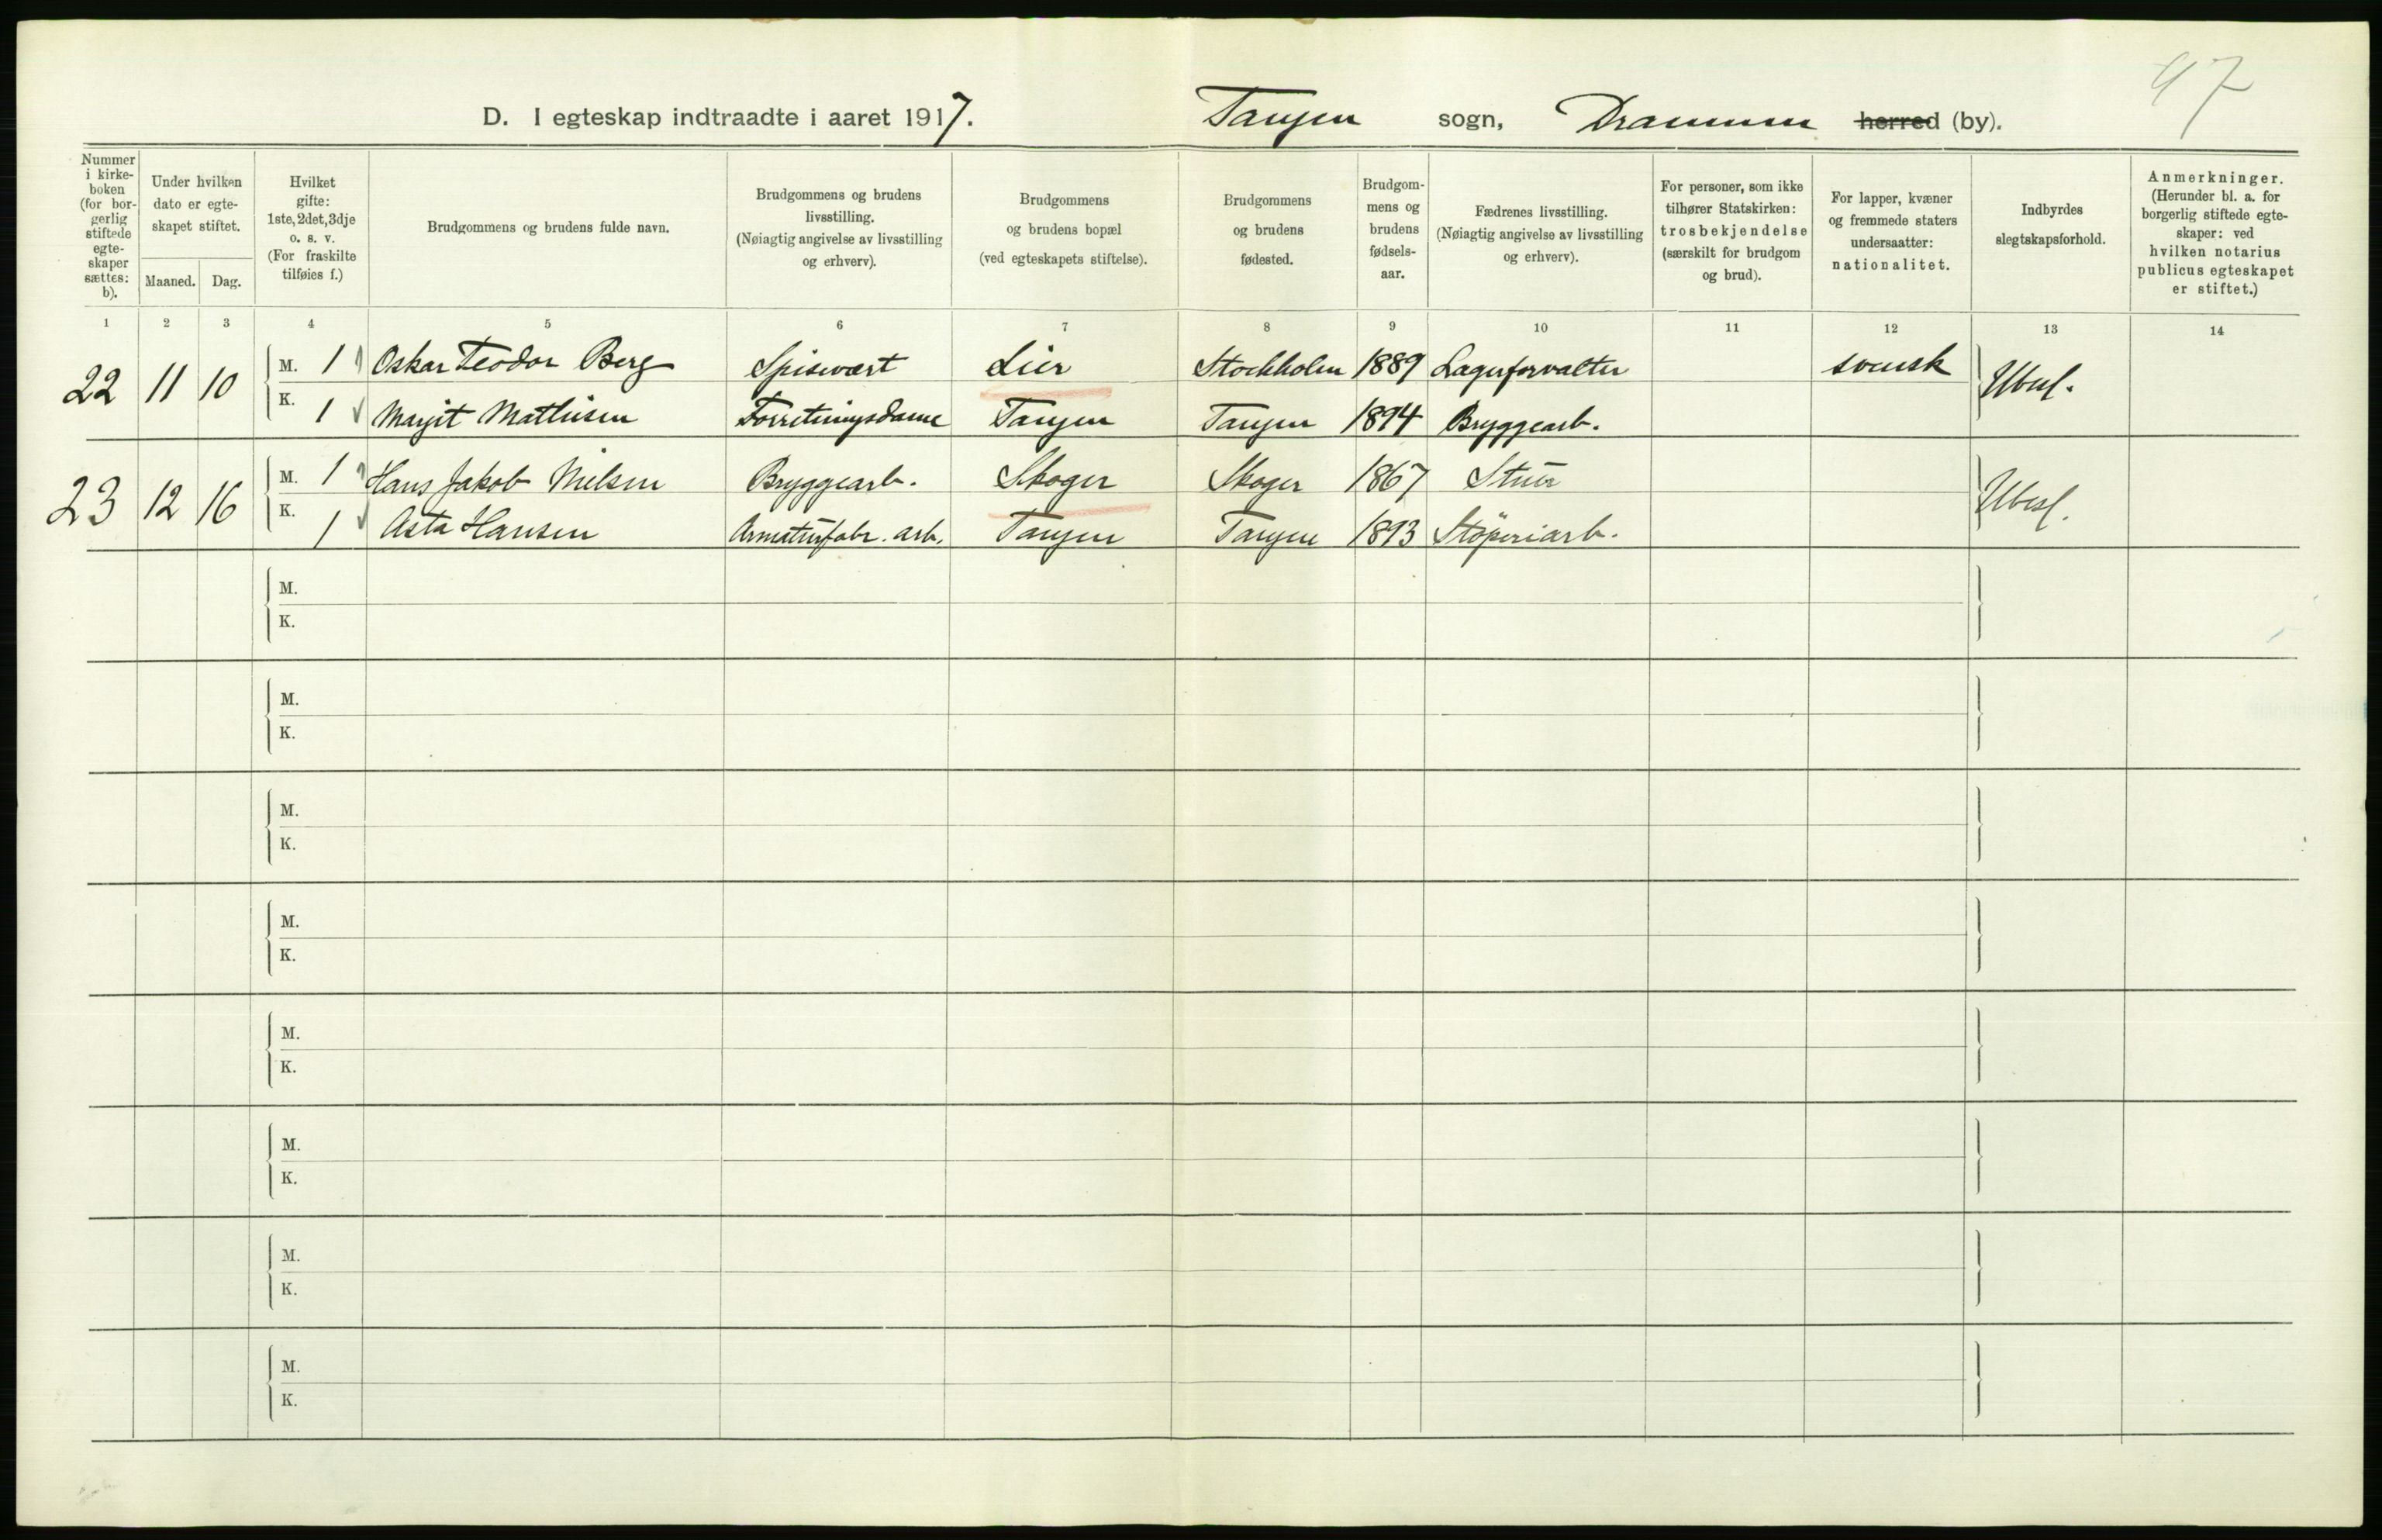 47
D. I egteskap indtraadte i aaret 1917. Tangen sogn, Drammen herred (by).
Nummer i kirke-boken (for bor-gerlig stiftede egte-skaper sættes: b).
Under hvilken dato er egte-skapet stiftet.
Maaned. Dag.
Hvilket gifte: 1ste, 2det, 3dje o. s. v. (For fraskilte tilføies f.)
Brudgommens og brudens fulde navn.
Brudgommens og brudens livsstilling. (Nøiagtig angivelse av livsstilling og erhverv).
Brudgommens og brudens bopæl (ved egteskapets stiftelse).
Brudgommens og brudens fødested.
Brudgom-mens og brudens fødsels-aar.
Fædrenes livsstilling. (Nøiagtig angivelse av livsstilling og erhverv).
For personer, som ikke tilhører Statskirken: trosbekjendelse (særskilt for brudgom og brud).
For lapper, kvæner og fremmede staters undersaatter: nationalitet.
Indbyrdes slegtskapsforhold.
Anmerkninger. (Herunder bl. a. for borgerlig stiftede egte-skaper: ved hvilken notarius publicus egteskapet er stiftet.)
1 2 3 4 5 6 7 8 9 10 11 12 13 14
22 11 10 M. 1 Oskar Teodor Berg Spisevært Lier Stockholm 1889 Lagerforvalter svensk Ubesl.
K. 1 Margit Mathisen Forretningsdame Tangen Tangen 1894 Bryggearb.
23 12 16 M. 1 Hans Jakob Nielsen Bryggearb. Skoger Skoger 1867 Stuer Ubesl.
K. 1 Asta Hansen Armaturfabr. arb. Tangen Tangen 1893 Støperiarb.
M.
K.
M.
K.
M.
K.
M.
K.
M.
K.
M.
K.
M.
K.
M.
K.